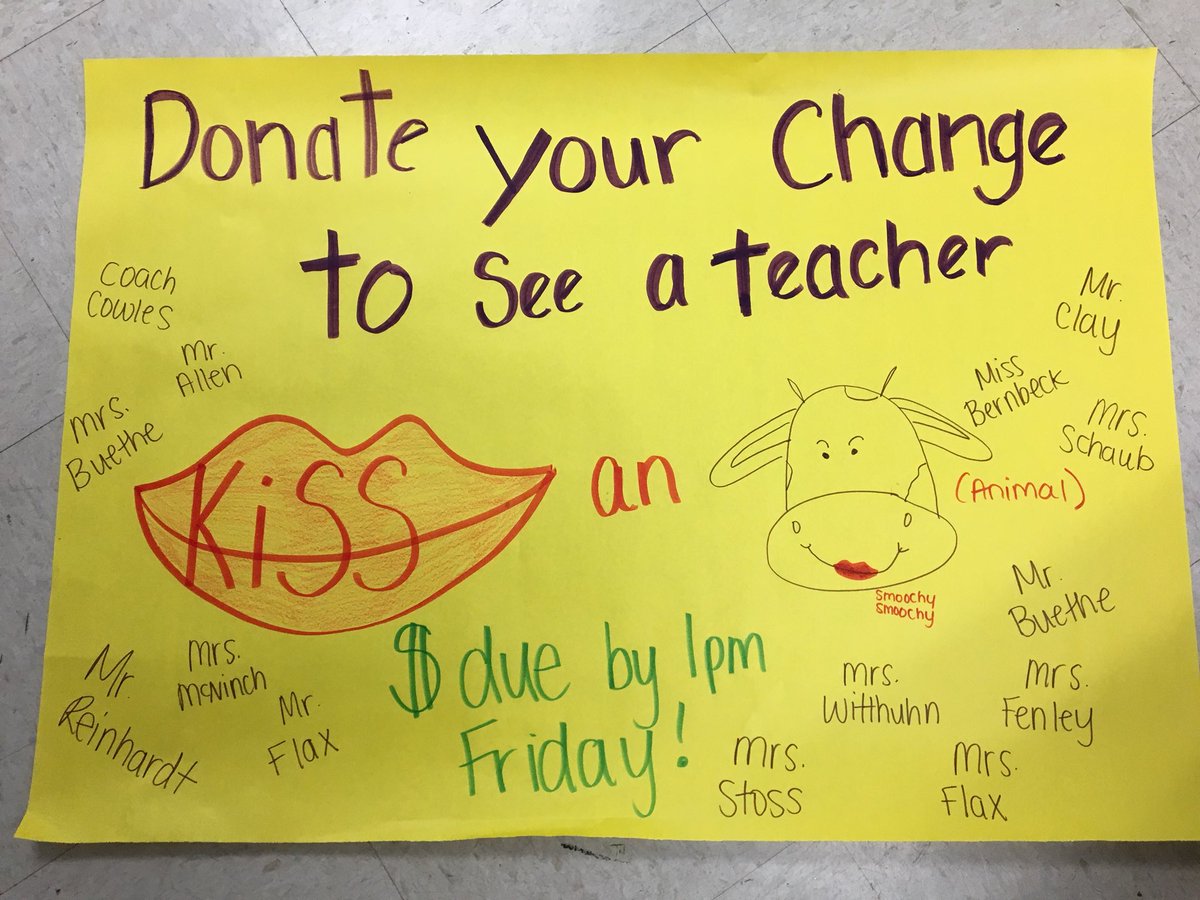 Donate your Change
to see a teacher
Coach
Cowles
Mr.
Allen
Mrs.
Buethe
Mr.
Clay
Miss
Bernbeck
Mrs.
Schaub
KiSS
an
(Animal)
Smoochy
Smoochy
$ due by 1pm
Friday!
Mr.
Reinhardt
Mrs.
McNinch
Mr.
Flax
Mr.
Buethe
Mrs.
Witthuhn
Mrs.
Fenley
Mrs.
Stoss
Mrs.
Flax